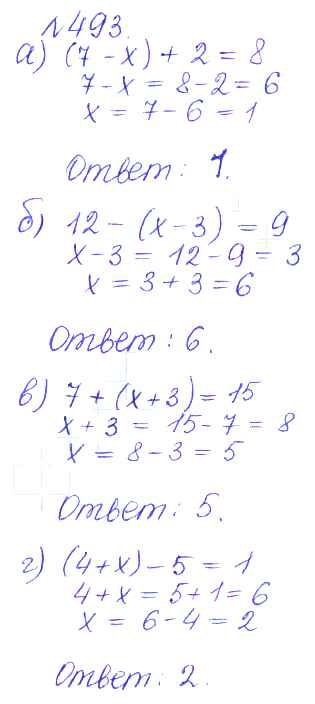 №493.
а) (7 - x) + 2 = 8
7 - x = 8 - 2 = 6
x = 7 - 6 = 1
Ответ: 1.
б) 12 - (x - 3) = 9
x - 3 = 12 - 9 = 3
x = 3 + 3 = 6
Ответ: 6.
в) 7 + (x + 3) = 15
x + 3 = 15 - 7 = 8
x = 8 - 3 = 5
Ответ: 5.
г) (4 + x) - 5 = 1
4 + x = 5 + 1 = 6
x = 6 - 4 = 2
Ответ: 2.